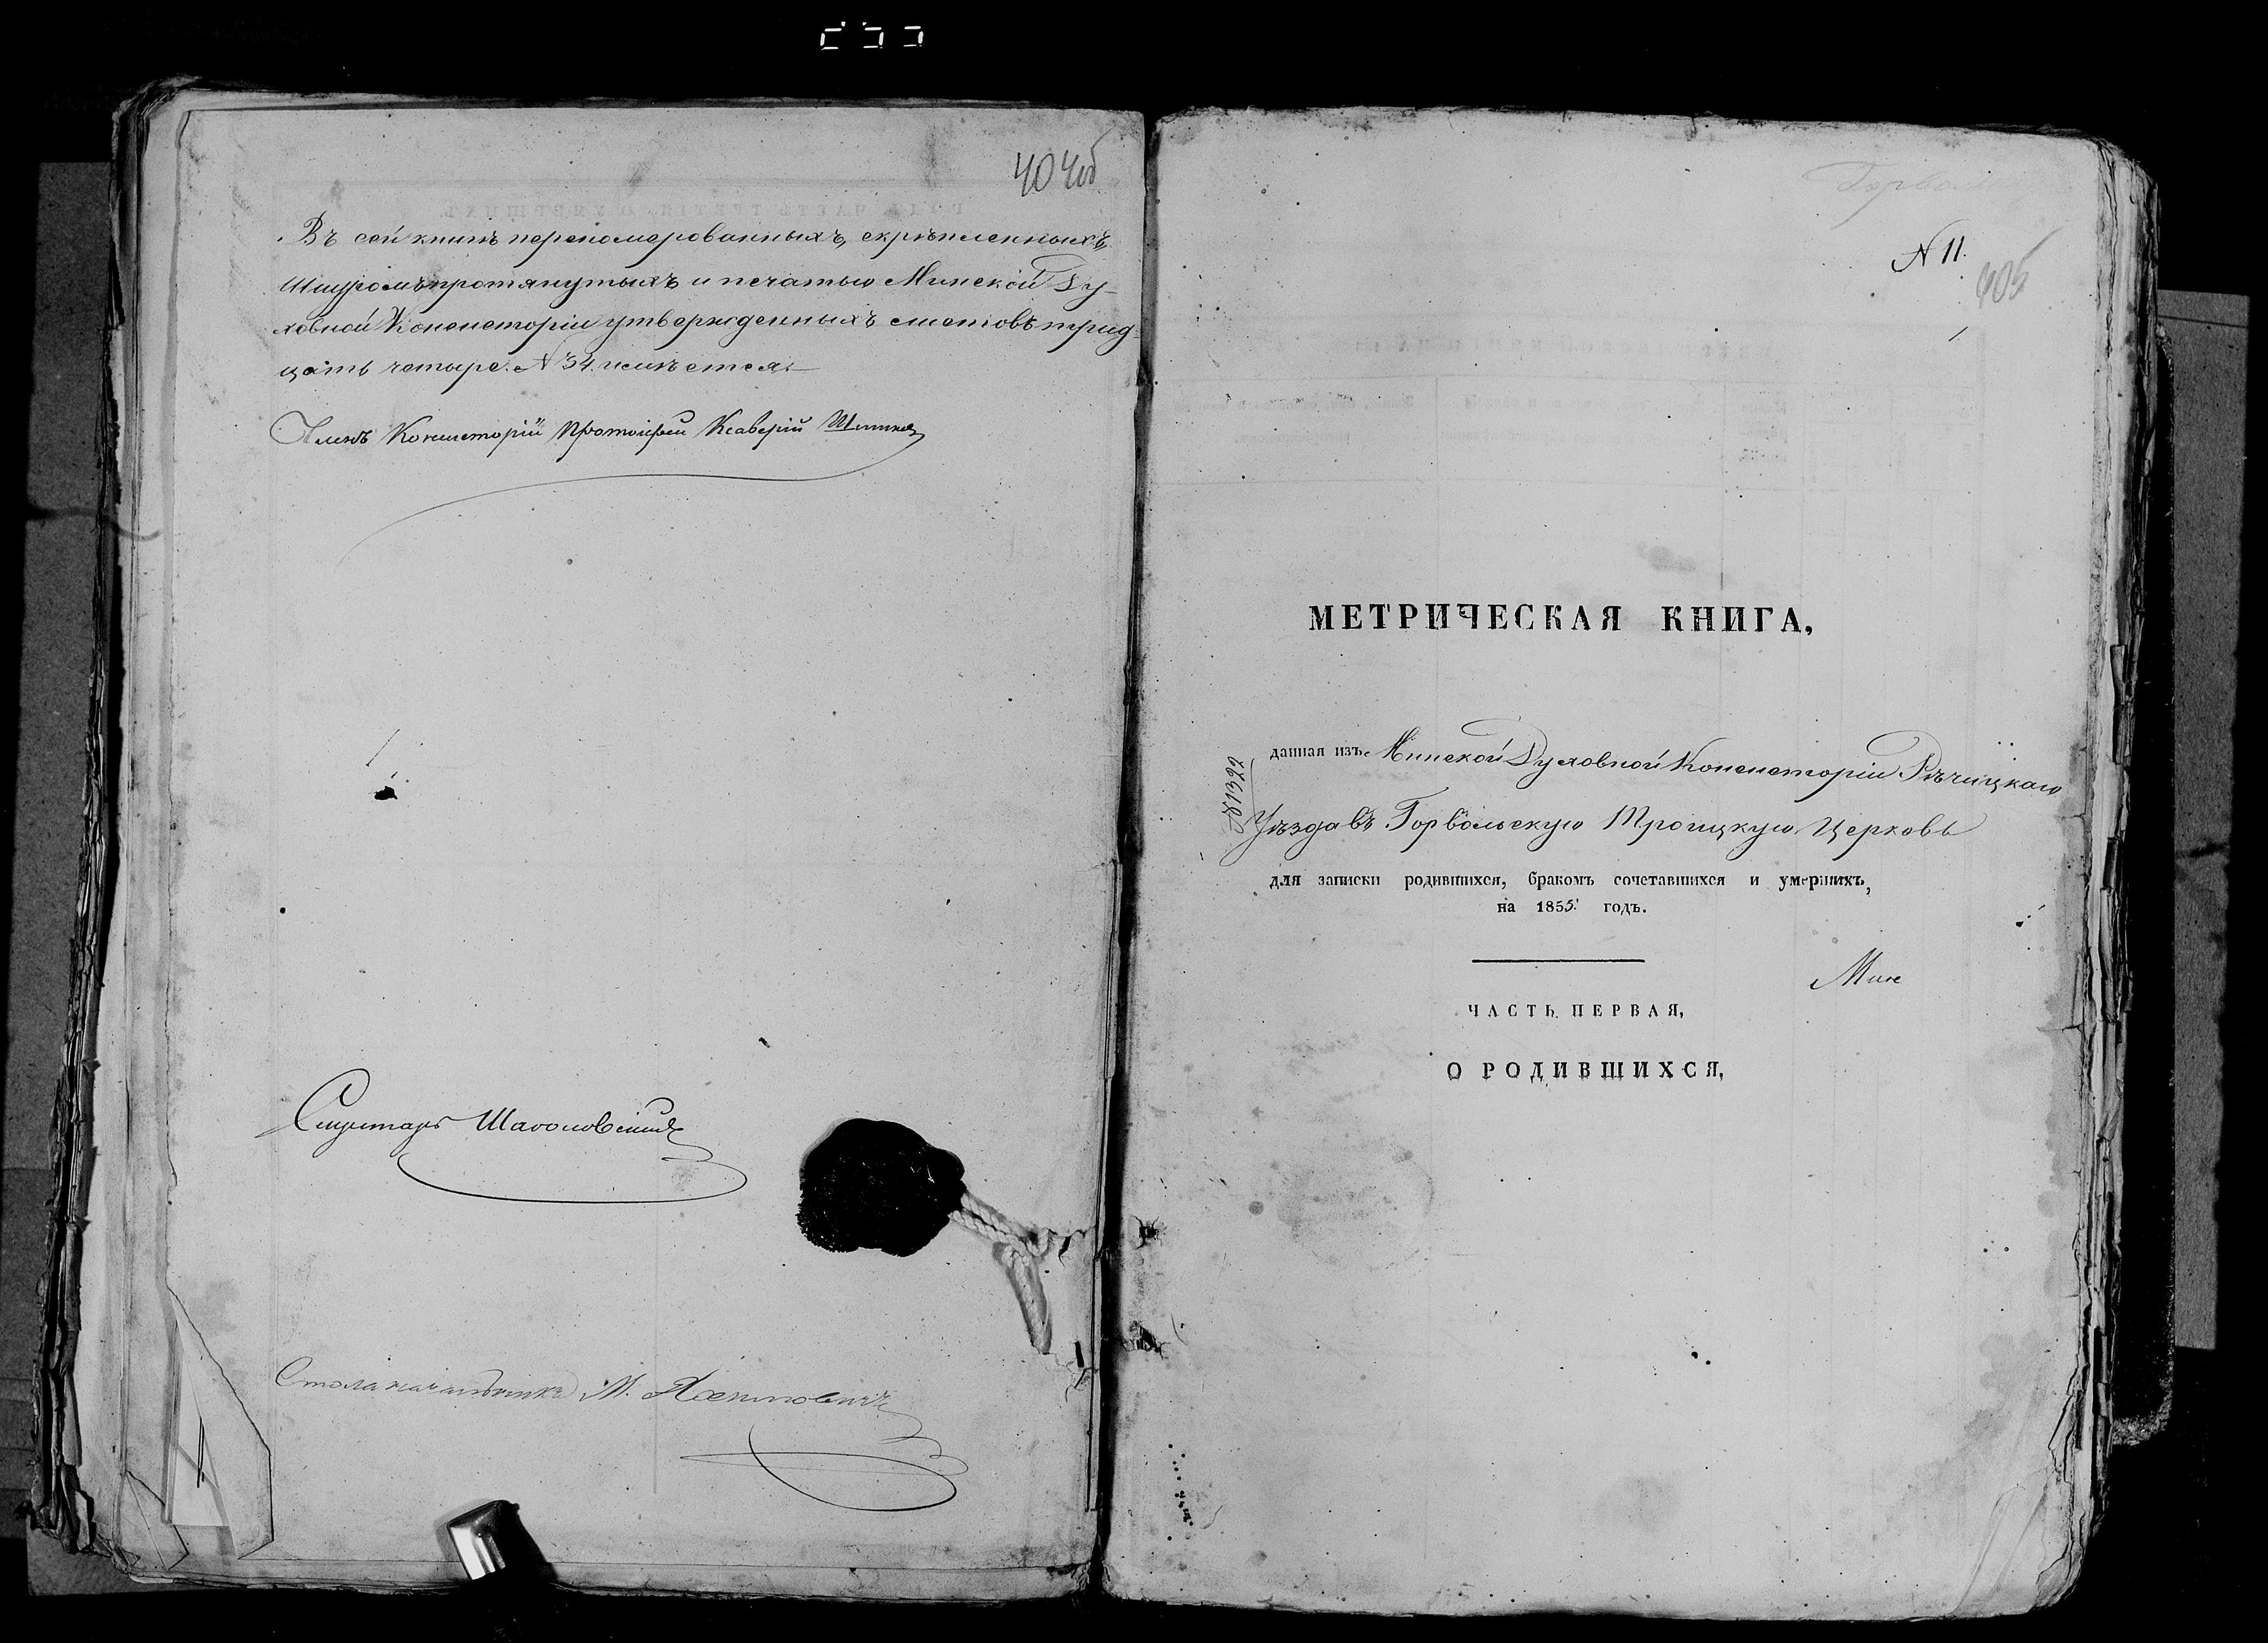 404об
Въ сей книгѣ переномерованныхъ, скрѣпленныхъ,
Шнуромъ протянутыхъ и печатью Минской Ду-
ховной Консисторіи утвержденныхъ листовъ трид-
цать четыре. N 34. имѣется.
Членъ Консисторіи Протоіерей Ксаверій
Секретарь
Столоначальникъ М.
N 11.
405
1
МЕТРИЧЕСКАЯ КНИГА,
данная изъ Минской Духовной Консисторіи Рѣчицкаго
Уѣзда въ Горвольскую Троицкую Церковь
для записки родившихся, бракомъ сочетавшихся и умершихъ,
на 1855 годъ.
№ 1322
Мин
ЧАСТЬ ПЕРВАЯ,
О РОДИВШИХСЯ,